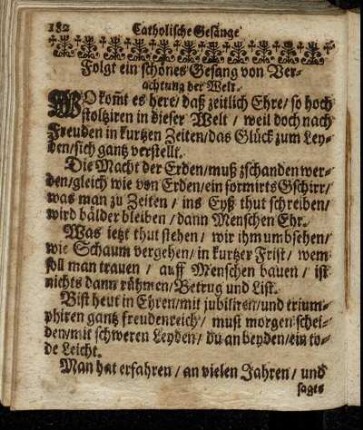 182 Catholische Gesänge
Folgt ein schönes Gesang von Ver-
achtung der Welt.
WO kom̃t es here/ daß zeitlich Ehre/ so hoch
stoltziren in dieser Welt / weil doch nach
Freuden in kurtzen Zeiten/das Glück zum Ley-
den/sich gantz verstellt.
Die Macht der Erden/muß zschanden wer-
den/gleich wie von Erden/ein formirts Gschirr/
was man zu Zeiten / ins Eyß thut schreiben/
wird bälder bleiben / dann Menschen Ehr.
Was jetzt thut stehen / wir ihm umbsehen/
wie Schaum vergehen/ in kurtzer Frist/ wem
soll man trauen / auff Menschen bauen / ist
nichts dann rühmen/Betrug und List.
Bist heut in Ehren/mit jubiliren/und trium-
phiren gantz freudenreich / must morgen schei-
den/mit schweren Leyden/ du an beyden/ein to-
de Leicht.
Man hat erfahren / an vielen Jahren / und
sagts